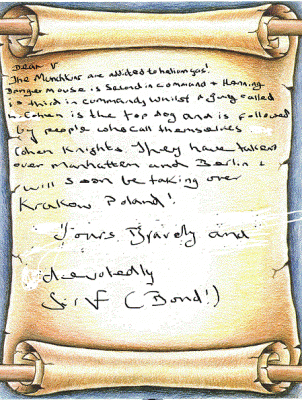 Dear V
The Munchkins are addicted to helium gas!
Danger Mouse is Second in Command + Henning
is third in commandy Whilst a guy called
L. Cohen is the top dog and is followed
by people who call themselves
Cohen Knights. They have taken
over Manhattan and Berlin &
will soon be taking over
Krakow Poland!
Yours Bravely and
devotedly
(Bond!)